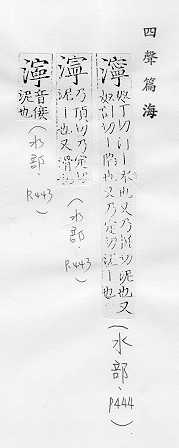 四聲篇海
濘 奴丁切汀濘水也又乃挺切泥也又
奴計切丨滑也又乃定切泥丨也
(水部、P444)
濘 乃頂切乃定切
泥丨也又滑
(水部、P.443)
濘 音佞
泥也
(水部、P.443)